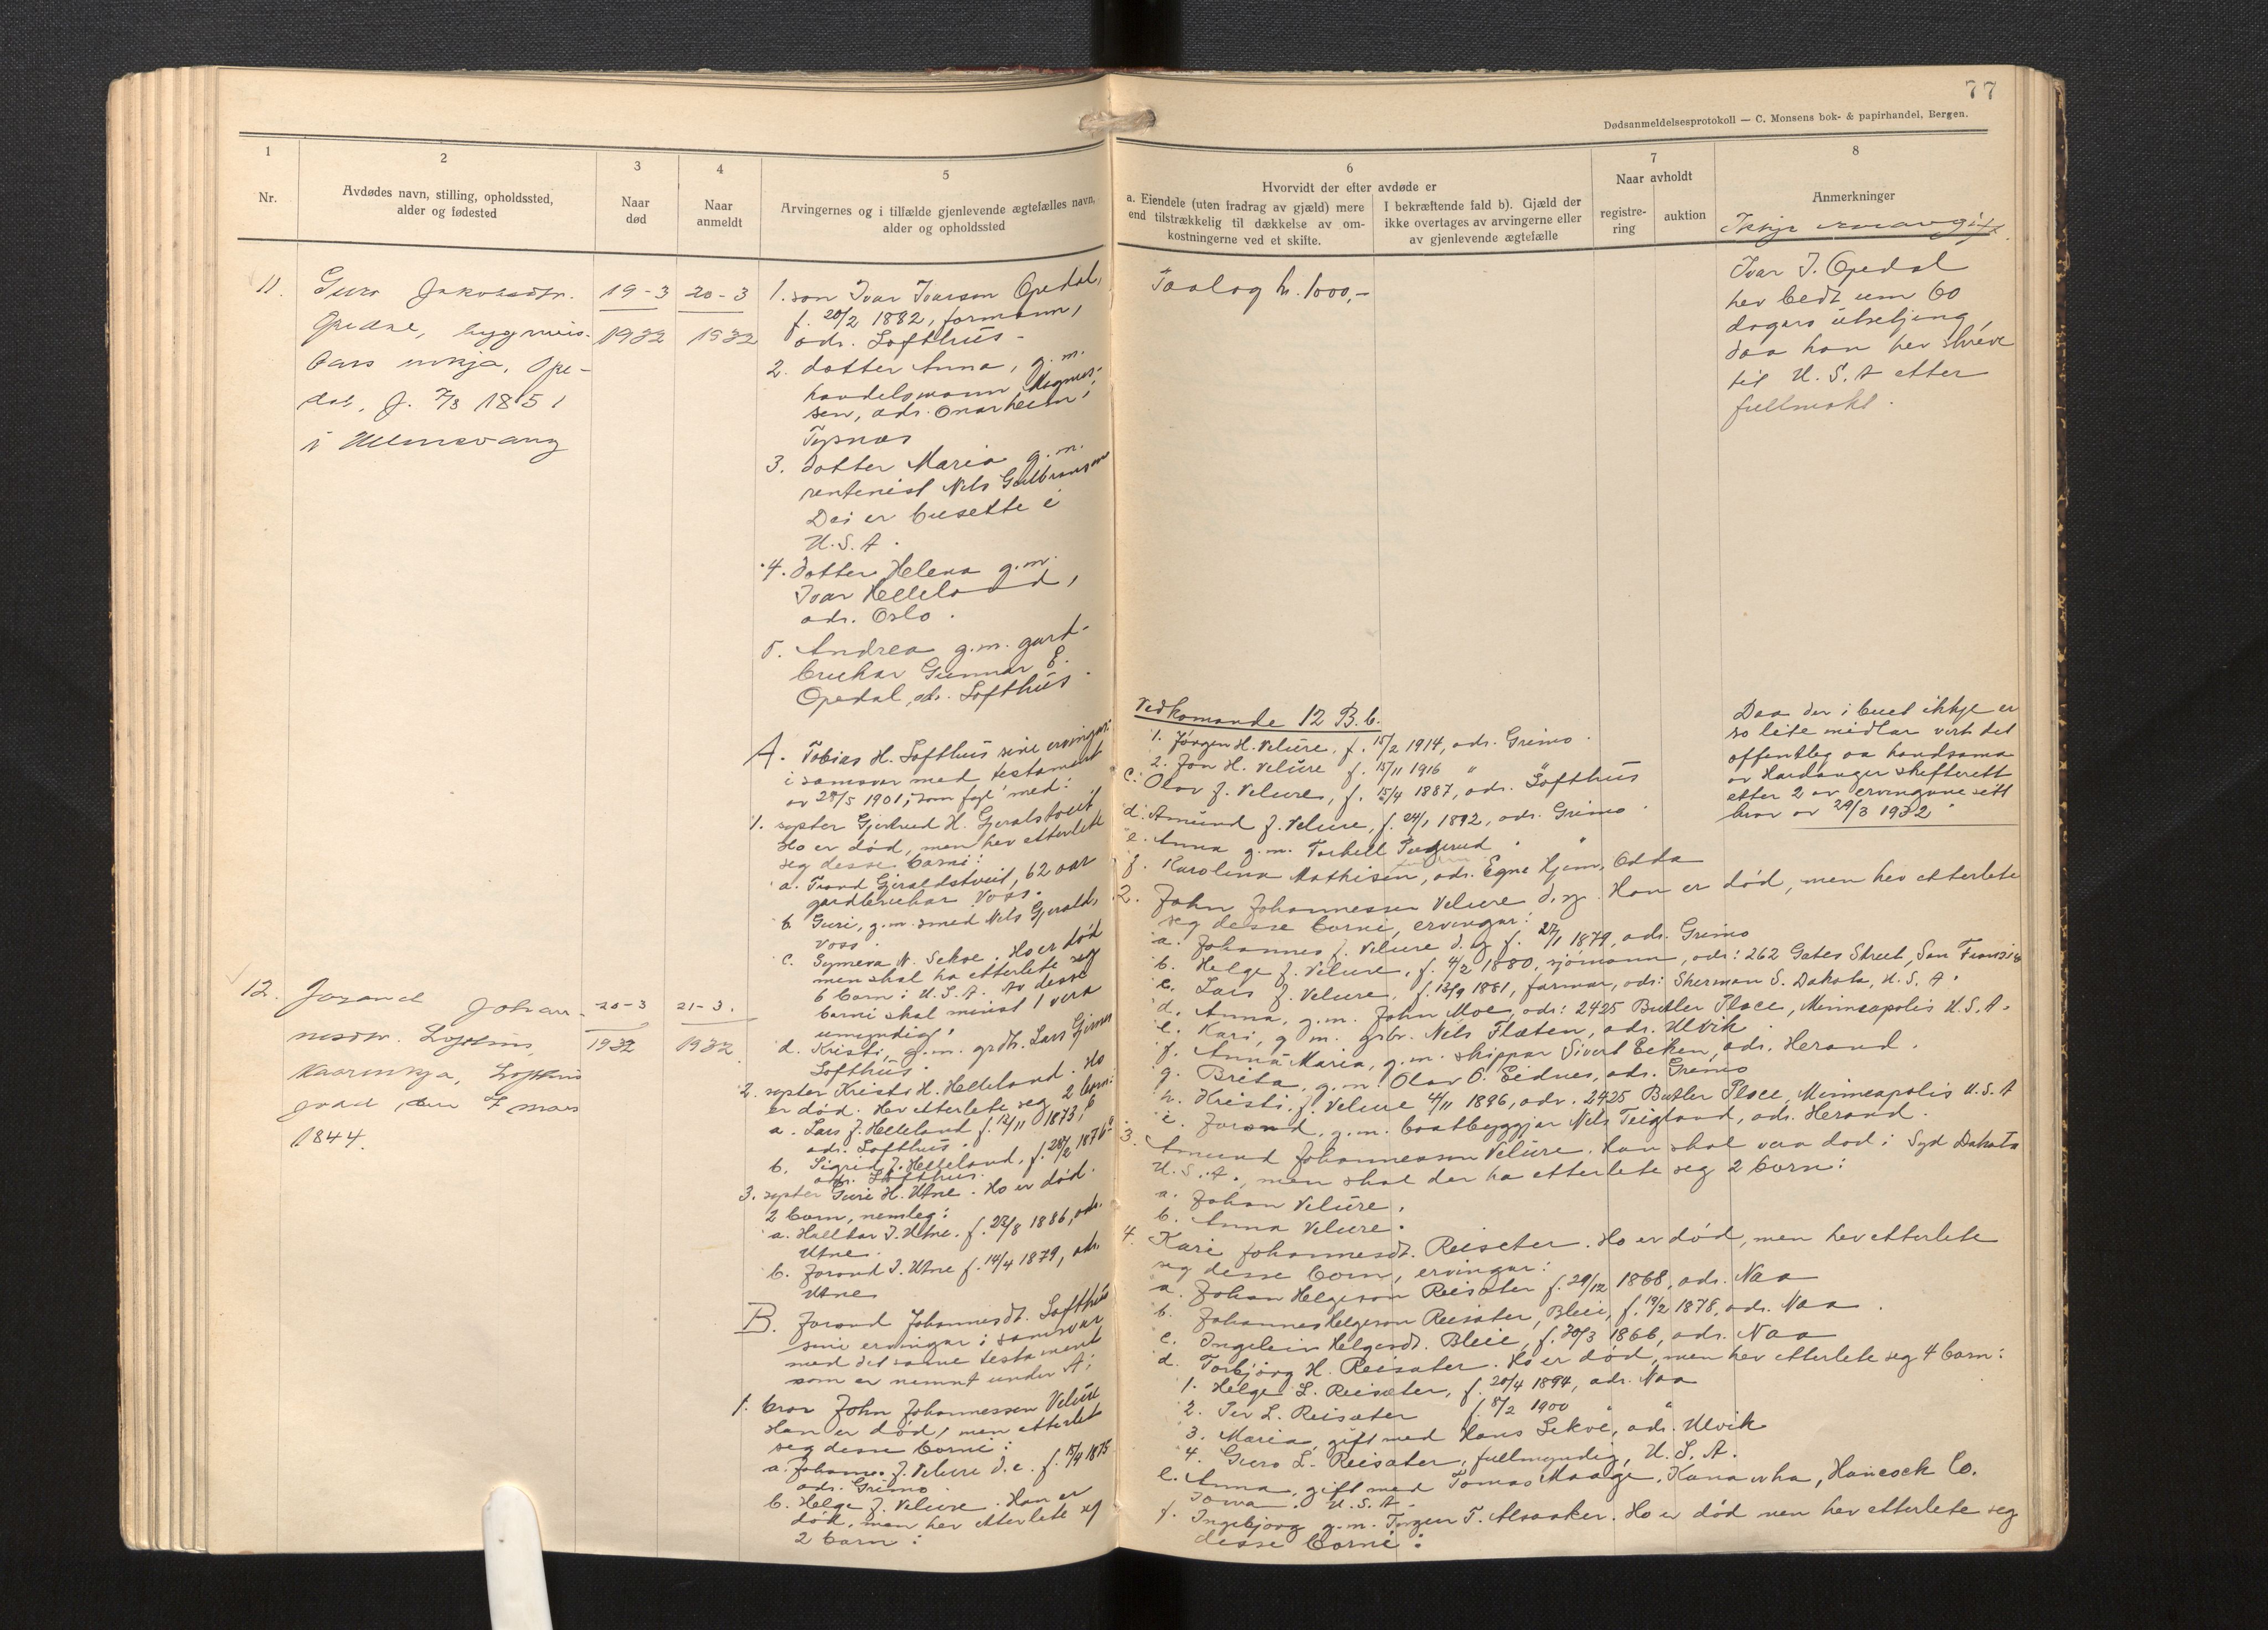 77
Dødsanmeldelsesprotokoll — C. Monsens bok- & papirhandel, Bergen.
1
Nr.
2
Avdødes navn, stilling, opholdssted,
alder og fødested
3
Naar
død
4
Naar
anmeldt
5
Arvingernes og i tilfælde gjenlevende ægtefælles navn,
alder og opholdssted
6
Hvorvidt der efter avdøde er
a. Eiendele (uten fradrag av gjæld) mere
end tilstrækkelig til dækkelse av om-
kostningerne ved et skifte.
I bekræftende fald b). Gjæld der
ikke overtages av arvingerne eller
av gjenlevende ægtefælle
7
Naar avholdt
registre-
ring
auktion
8
Anmerkninger
Ikkje
11.
Guro Jakobsdtr.
Opedal, byggmeis-
tars enkja, Ope-
dal, f. 7/3 1851
i Ullensvang
19-3
1932
20-3
1932
1. son Ivar Ivarson Opedal,
f. 20/2 1882, formann,
adr. Lofthus
2. dotter Anna, g.m.
handelsmann Magnus-
sen, adr. Onarheim,
Tysnes
3. dotter Maria g.m.
rentenist Nils Gulbranson
Dei er busette i
U.S.A.
4. dotter Helena g.m.
Ivar Helleland,
adr. Oslo.
5. Andrea g.m. gard-
brukar Gunnar E.
Opedal, adr. Lofthus.
Taalag kr. 1000,-
Ivar I. Opedal
hev bedt um 60
dagars utsetjing,
daa han hev skreve
til U.S.A etter
fullmakt.
12.
Jorand Johan-
nesdtr. Lofthus,
kaarenkja, Lofthus
fødd den 7 mars
1844.
20-3
1932
21-3.
1932
A. Tobias H. Lofthus sine ervingar
i samsvar med testament
av 28/5 1901, som fylgt med:
1. syster Gjertrud H. Gjeraldstveit
Ho er død, men hev etterlete
seg desse borni:
a. Trond Gjeraldstveit, 62 aar
gardbrukar Voss.
b. Guri, g.m. smed Nils Gjerald,
Voss.
c. Synneva N. Sekse. Ho er død
men skal ha etterlete seg
6 born i U.S.A. Av desse
borni skal minst 1 vera
umyndig.
d. Kristi, g.m. grdbr. Lars
Lofthus.
2. syster Kristi H. Helleland. Ho
er død. Hev etterlete seg 2 born:
a. Lars J. Helleland f. 12/11 1873,
adr. Lofthus.
b. Sigrid J. Helleland, f. 28/2 1876
adr. Lofthus.
3. syster Guri H. Utne. Ho er død.
2 born, nemleg:
a. Hallvar I. Utne. f. 23/8 1886, adr.
Utne.
b. Jorand I. Utne f. 14/4 1879, adr.
Utne
B. Jorand Johannesdt. Lofthus
sine ervingar i samsvar
med det same testament
som er nemnt under A:
1. bror John Johannessen Velure
Han er død, men etterlet
seg desse borni:
a. Johannes J. Velure d.e. f. 15/9 1875
adr. Grimo
b. Helge J. Velure. Han er
død, men hev etterlete seg
2 born:
Vedkomande 12 B.b.
1. Jørgen H. Velure, f. 15/2 1914, adr. Grimo.
2. Jon H. Velure f. 15/11 1916 " "
c. Olav J. Velure, f. 15/4 1887, adr. Lofthus
d. Amund J. Velure, f. 24/1 1892, adr. Grimo
e. Anna g.m. Torkell " "
f. Karolina Mathisen, adr. Egne Hjem, Odda
2. John Johannessen Velure d.y. Han er død, men hev etterlete
seg desse borni, ervingar:
a. Johannes J. Velure d.y f. 27/1 1879, adr. Grimo
b. Helge J. Velure, f. 4/2 1880, sjømann, adr: 262 Gates Street, San Fransisco
c. Lars J. Velure, f. 13/9 1881, farmar, adr: Sherman S. Dakota, U.S.A.
d. Anna, g.m. John Moe, adr: 2425 Butler Place, Minneapolis U.S.A.
e. Kari, g m. grbr. Nils Flæten, adr. Ulvik
f. Anna Maria, g.m. skippar Sivert Eeken, adr. Herand.
g. Brita, g.m. Olav O. Eidnes, adr. Grimo
h. Kristi J. Velure 4/11 1896, adr. 2425 Butler Place, Minneapolis U.S.A
i. Jorand, g.m. baatbyggjar Nils Teigland, adr. Herand.
3. Amund Johannesson Velure. Han skal vera død i Syd Dakota
U.S.A., men skal der ha etterlete seg 2 born:
a. Johan Velure,
b. Anna Velure.
4. Kari Johannesdt. Reiseter. Ho er død, men hev etterlete
seg desse born, ervingar:
a. Johan Helgeson Reiseter f. 29/12 1868, adr. Naa
b. Johannes Helgeson Reiseter, Bleie, f. 19/2 1878, adr. Naa.
c. Ingeleiv Helgesdt. Bleie, f. 30/3 1866, adr. Naa
d. Torbjørg H. Reiseter. Ho er død, men hev etterlete seg 4 born:
1. Helge L. Reiseter, f. 20/4 1894, adr. Naa
2. Per L. Reiseter f. 8/2 1900 " "
3. Maria, gift med Hans Sekse, adr. Ulvik
4. Guro L. Reiseter, fullmyndig, U.S.A.
e. Anna, gift med Tomas Maage, Kanawha, Hancock Co.
Iowa. U.S.A.
f. Ingebjørg g.m. Torgeir T. Alsaaker. Ho er død men hev etterlete seg
desse borni:
Daa der i buet ikkje er
so lite midlar vert det
offentleg aa handsama
av Hardanger skifterett
etter 2 av ervingane sitt
brev av 29/3 1932